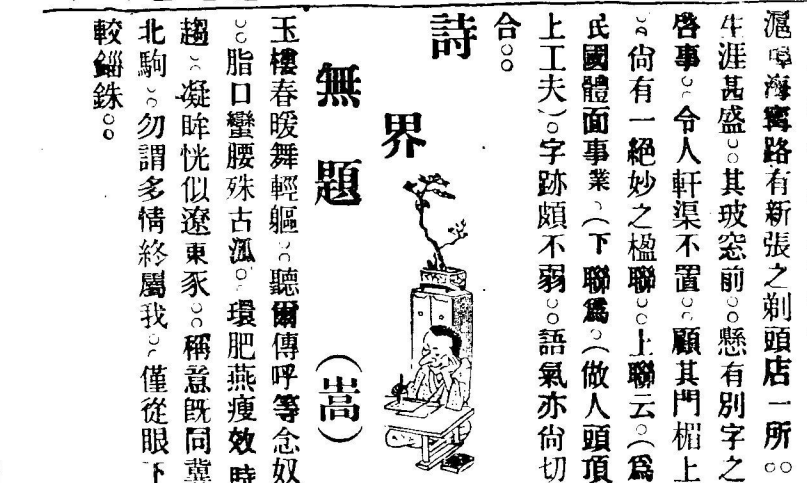 滬嘷海寗路有新張之剃頭店一所。
生涯甚盛。其玻窓前。懸有別字之
啓事。令人軒渠不置。顧其門楣上
。尙有一絕妙之楹聯。上聯云。（爲
民國體面事業、（下聯爲。（做人頭頂
上工夫）。字跡頗不弱。語氣亦尙切
合。
詩界
無題　（嵩）
玉樓春暖舞輕軀。聽爾傳呼等念奴
。脂口蠻腰殊古溫。環肥燕瘦效時
趨。凝眸恍似遼東豕。稱意旣同冀
北駒。勿謂多情終屬我。僅從眼下
較錙銖。